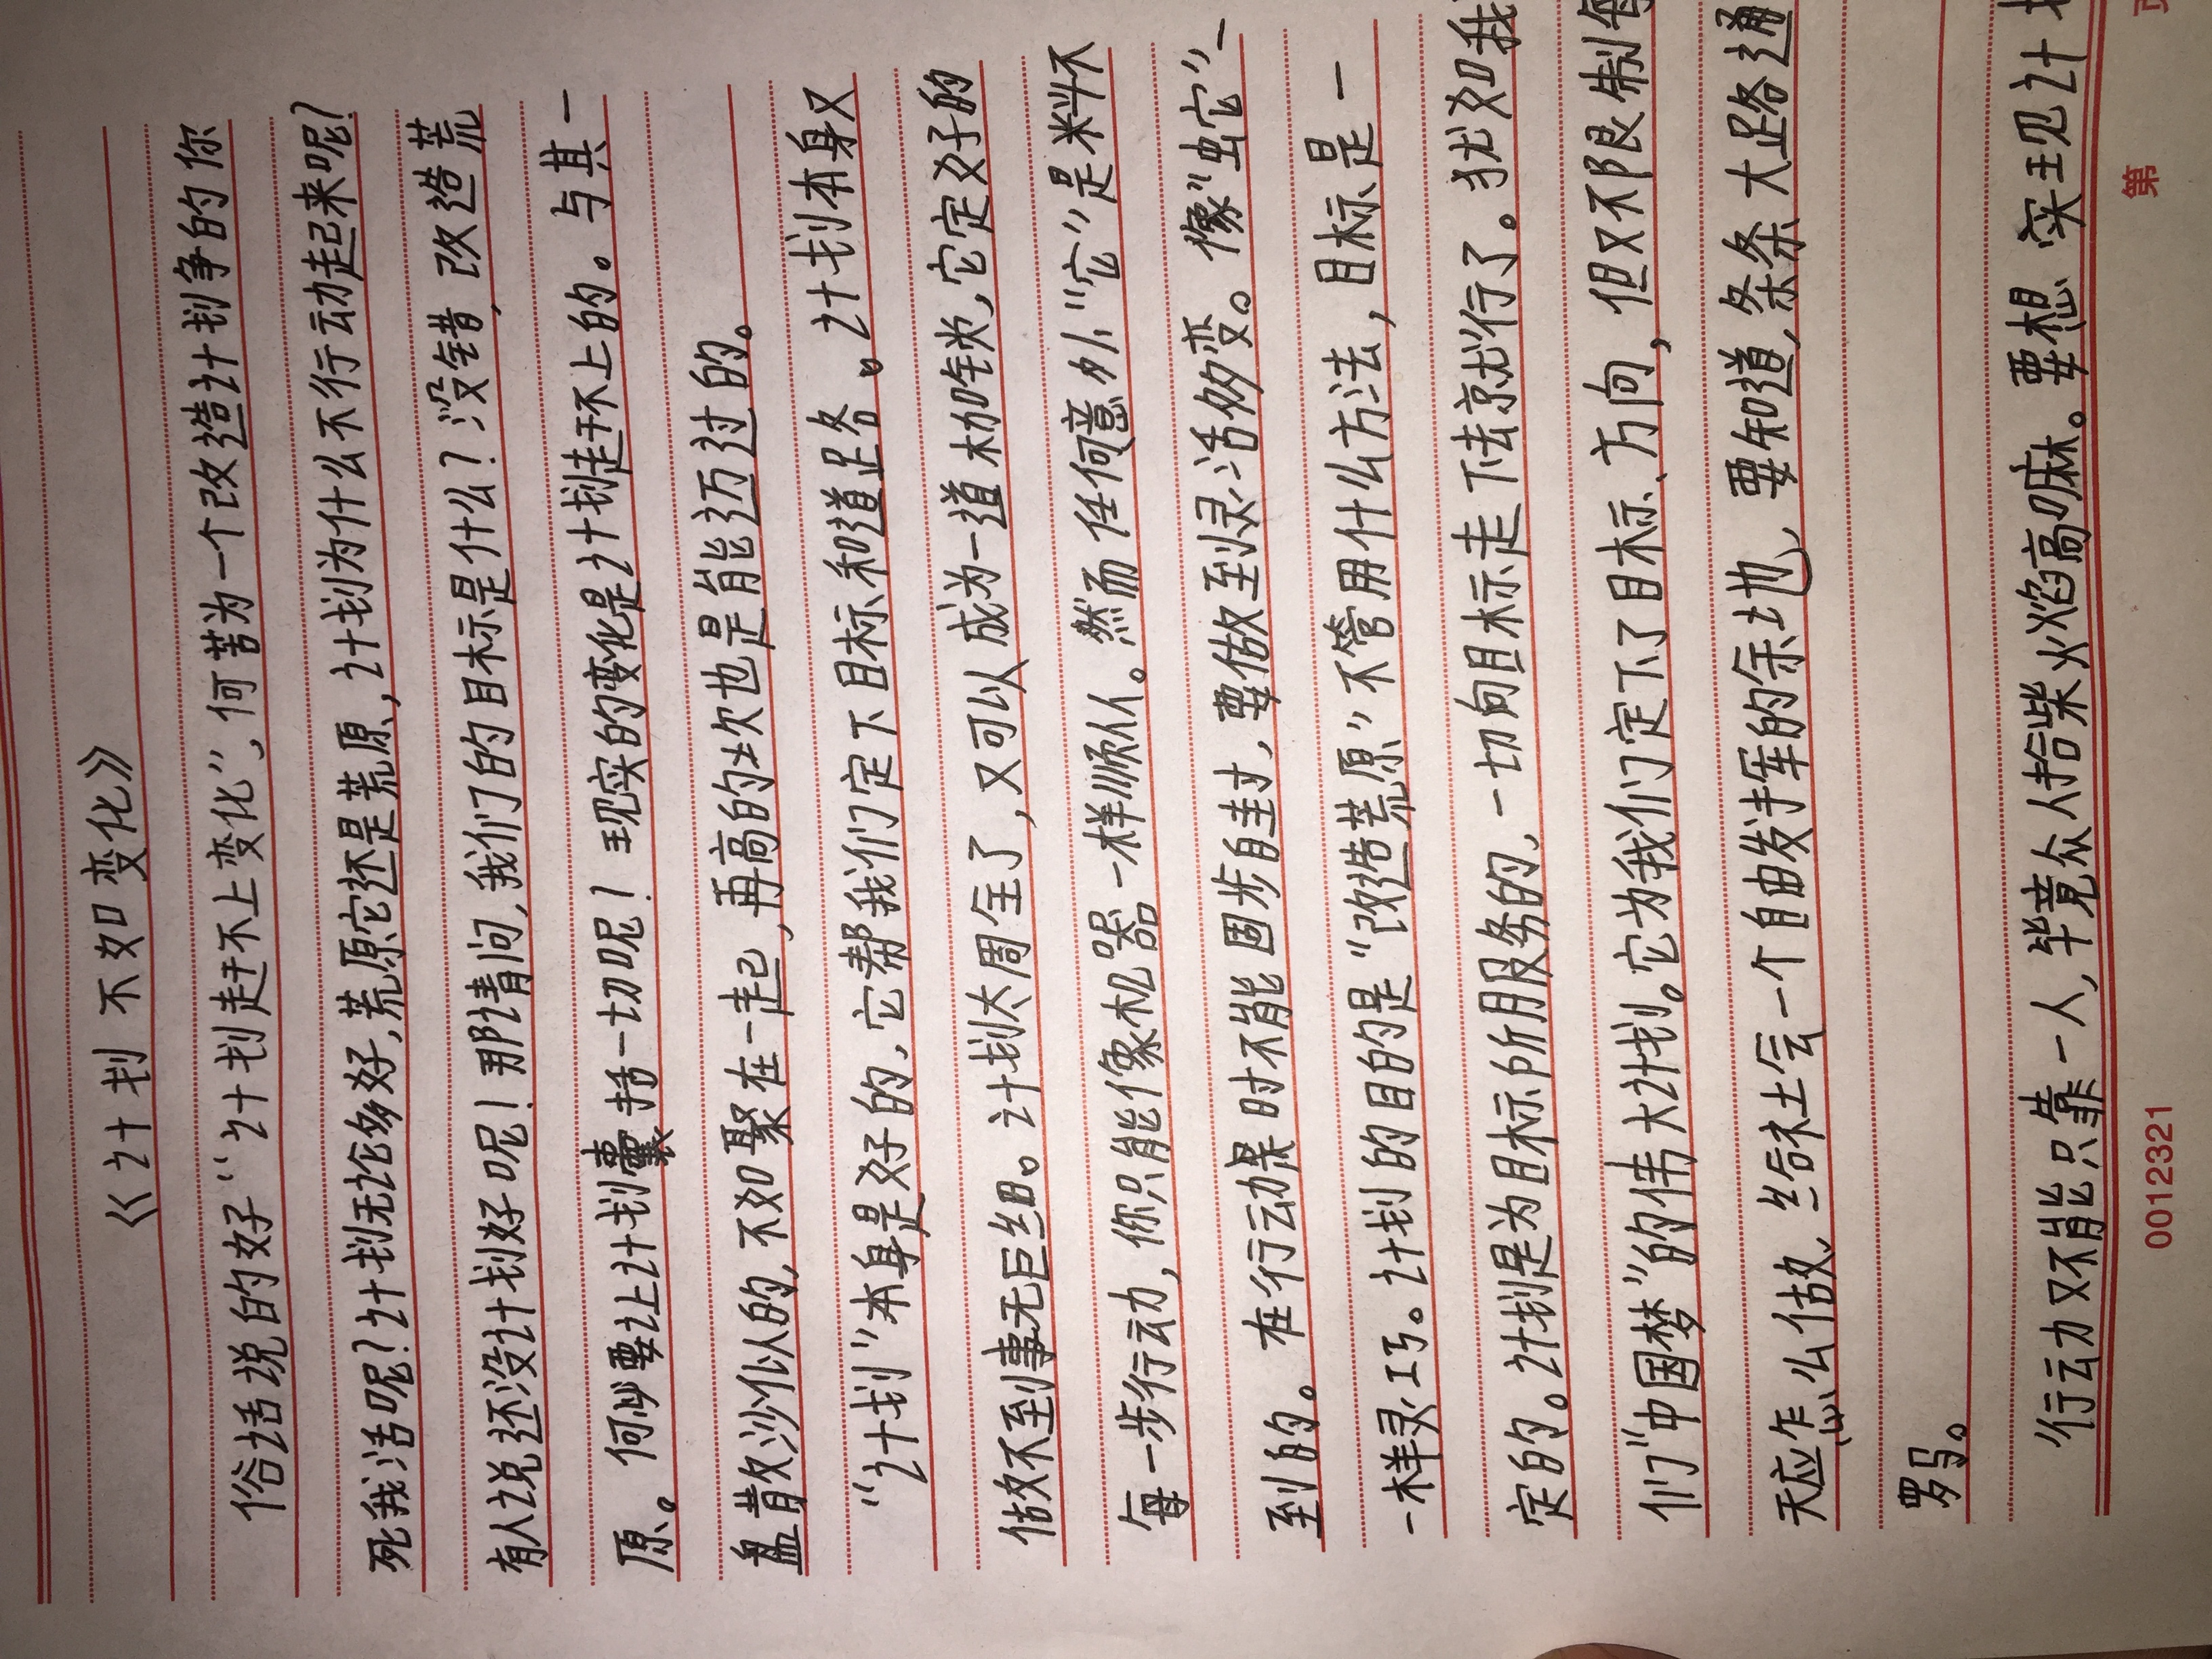 《计划不如变化》
俗话说的好“计划赶不上变化”，何苦为一个改造计划争的你
死我活呢?计划无论多好,荒原它还是荒原,计划为什么不行动起来呢?
有人说还没计划好呢!那请问,我们的目标是什么?没错,改造荒
原。何必要让计划囊括一切呢!现实的变化是计划赶不上的。与其一
盘散沙似的,不如聚在一起,再高的坎也是能迈过的。
“计划”本身是好的,它帮我们定下目标和道路。计划本身又
做不到事无巨细。计划太周全了,又可以成为一道枷锁,它定好的
每一步行动,你只能像机器一样顺从。然而任何意外“它”是料不
到的。在行动果时不能固步自封,要做到灵活多变。像“蛇”一
一样灵巧。计划的目的是“改造荒原”不管用什么方法,目标是一
定的。计划是为目标所服务的,一切向目标走下去就行了。犹如我
们“中国梦”的伟大计划。它为我们定下了目标、方向,但又不限制每
天应怎么做,给社会一个自由发挥的余地,要知道,条条大路通
罗马。
行动又不能只靠一人,毕竟众人拾柴火焰高嘛。要想实现计
0012321
第